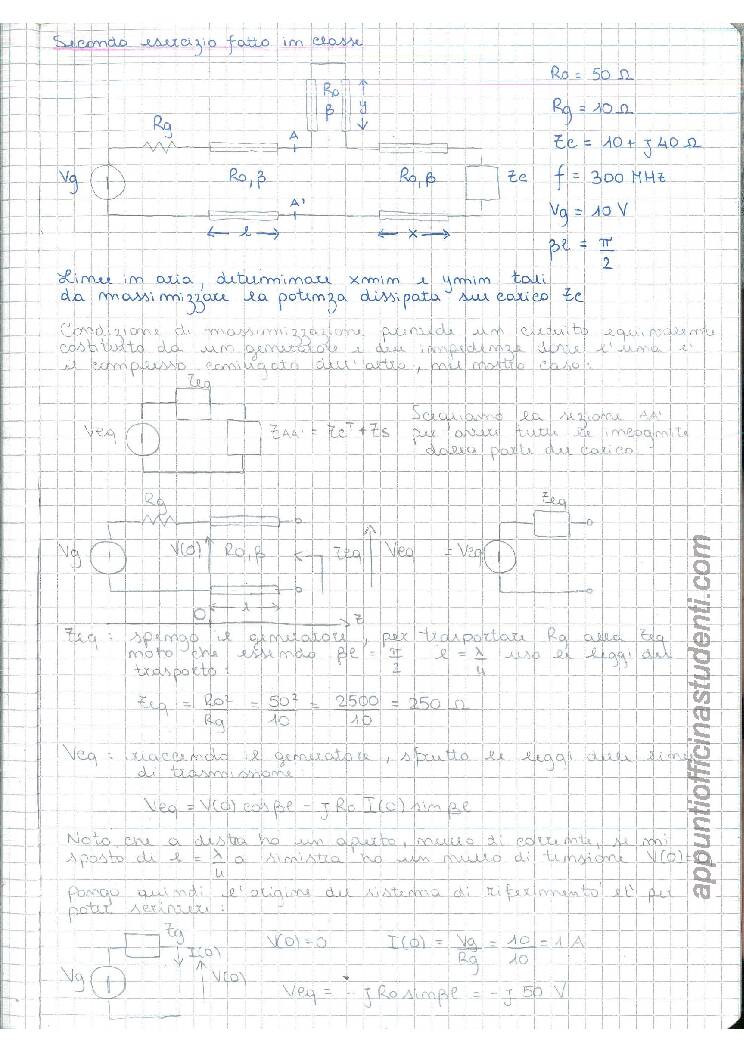 Secondo esercizio fatto in classe
R0 = 50 Ω
Rg = 10 Ω
Zc = 10 + j 40 Ω
f = 300 MHz
Vg = 10 V
βl = π/2
Rg
Vg
R0, β
l
A
A'
R0
β
y
R0, β
x
Zc
Linee in aria, determinare xmin e ymin tali
da massimizzare la potenza dissipata sul carico Zc
Condizione di massimizzazione prevede un circuito equivalente
costituito da un generatore e due impedenze serie l'una è
il complesso coniugato dell'altra, nel nostro caso:
Zeq
Veq
ZAA' = Zc^T + Zs
Scegliamo la sezione AA'
per avere tutte le incognite
dalla parte del carico
Rg
Vg
V(0)
R0, β
Zeq
Veq = Veq
Zeq
l
0
z
Zeq: spengo il generatore, per trasportare Rg alla Zeq
noto che essendo βl = π/2 l = λ/4 uso le leggi del
trasporto:
Zeq = R0²/Rg = 50²/10 = 2500/10 = 250 Ω
Veq: riaccendo il generatore, sfrutto le leggi delle linee
di trasmissione
Veq = V(0) cosβl - j R0 I(0) sinβl
Noto che a destra ho un aperto, nullo di corrente, se mi
sposto di l = λ/4 a sinistra ho un nullo di tensione V(0)=0
pongo quindi l'origine del sistema di riferimento lì per
poter scrivere:
Zg
I(0)
Vg
V(0)
V(0) = 0
I(0) = Vg/Rg = 10/10 = 1 A
Veq = - j R0 sinβl = - j 50 V
appuntiofficinastudenti.com